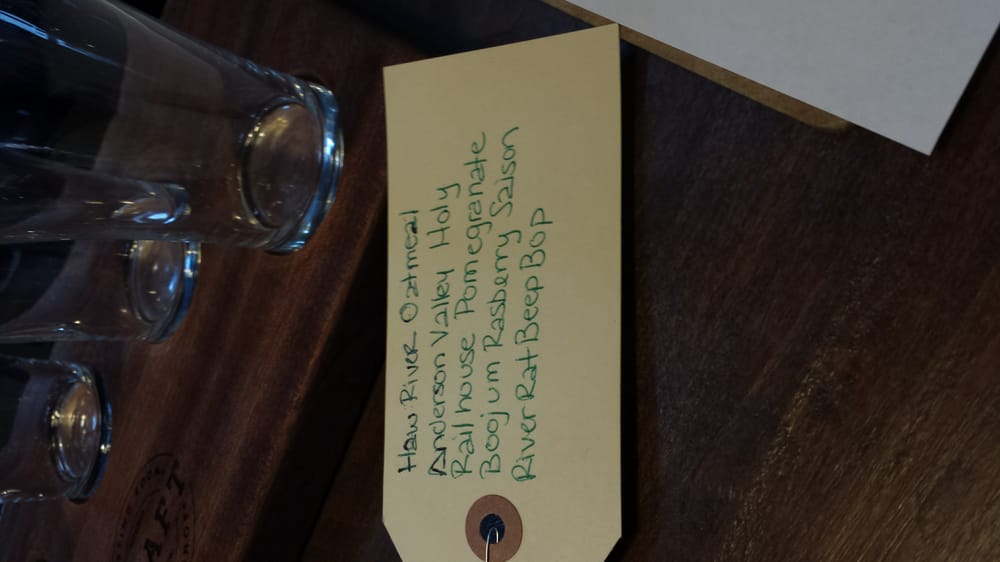 Haw River Oatmeal
Anderson Valley Holy
Railhouse Pomegranate
Boojum Rasberry Saison
River Rat Beep Bop
AFT